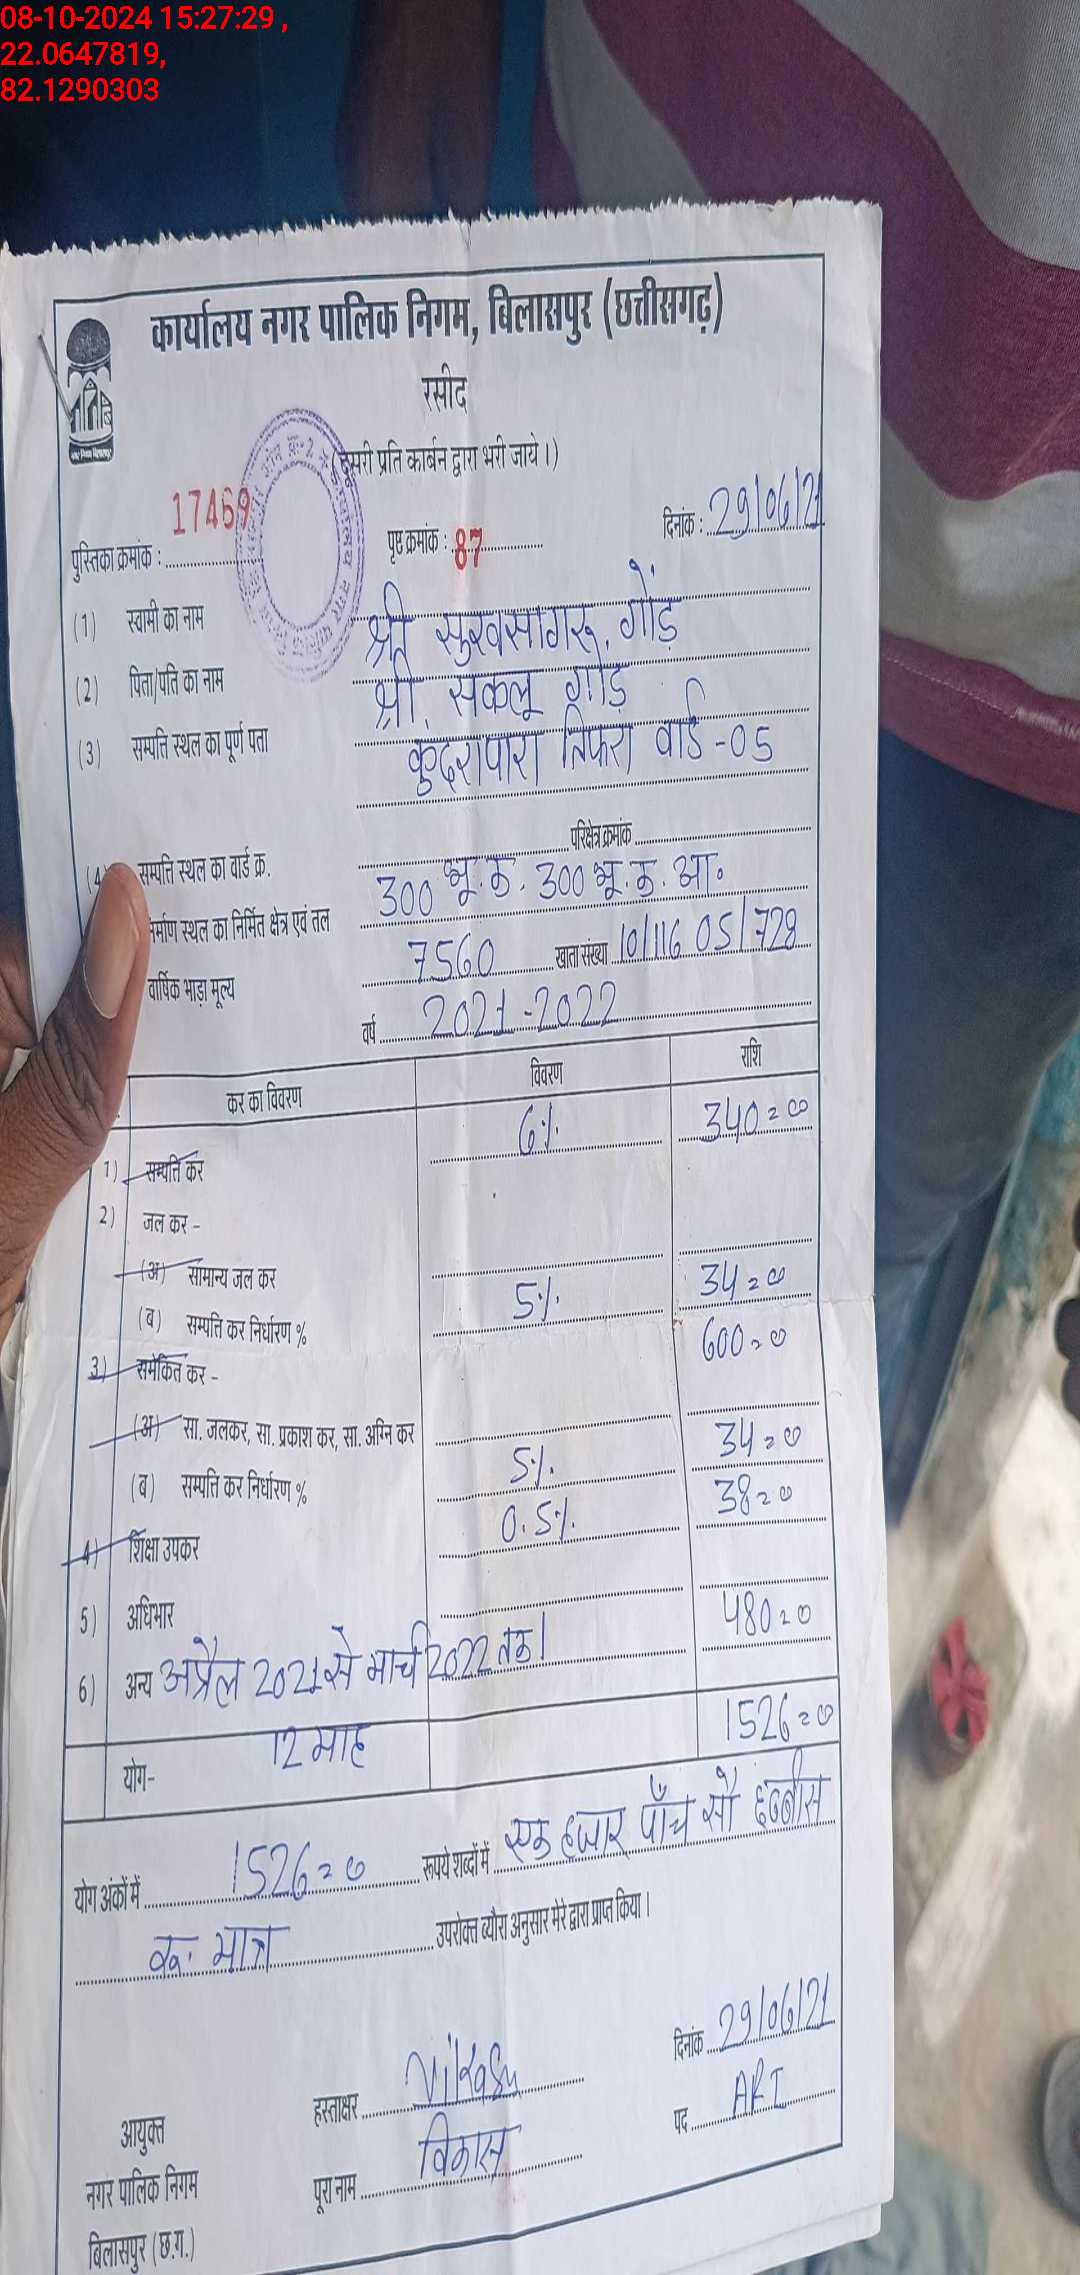 08-10-2024 15:27:29 ,
22.0647819,
82.1290303
कार्यालय नगर पालिक निगम, बिलासपुर (छत्तीसगढ़)
रसीद
(दूसरी प्रति कार्बन द्वारा भरी जाये।)
पुस्तिका क्रमांक : 17469 पृष्ठ क्रमांक : 87 दिनांक : 29/06/21
(1) स्वामी का नाम श्री सुखसागर गोंड़
(2) पिता/पति का नाम श्री. सकलू गोंड़
(3) सम्पत्ति स्थल का पूर्ण पता कुदरापारा तिफरा वार्ड-05
(4) सम्पत्ति स्थल का वार्ड क्र. परिक्षेत्र क्रमांक
निर्माण स्थल का निर्मित क्षेत्र एवं तल 300 भू.क. 300 भू.क. आ.
वार्षिक भाड़ा मूल्य 7560 खाता संख्या 10/116 05/728
वर्ष 2021-2022
कर का विवरण विवरण राशि
1) सम्पत्ति कर 6% 340=00
2) जल कर -
(अ) सामान्य जल कर
(ब) सम्पत्ति कर निर्धारण % 5% 34=00
3) समेकित कर - 600=0
(अ) सा. जलकर, सा. प्रकाश कर, सा. अग्नि कर
(ब) सम्पत्ति कर निर्धारण % 5% 34=0
4) शिक्षा उपकर 0.5% 38=0
5) अधिभार
6) अन्य अप्रैल 2021 से मार्च 2022 तक। 480=0
योग- 12 माह 1526=0
योग अंकों में 1526=0 रूपये शब्दों में एक हजार पाँच सौ छब्बीस
रू. मात्र उपरोक्त ब्यौरा अनुसार मेरे द्वारा प्राप्त किया।
दिनांक 29/06/21
आयुक्त हस्ताक्षर Vikash पद ARI
नगर पालिक निगम पूरा नाम विकास
बिलासपुर (छ.ग.)